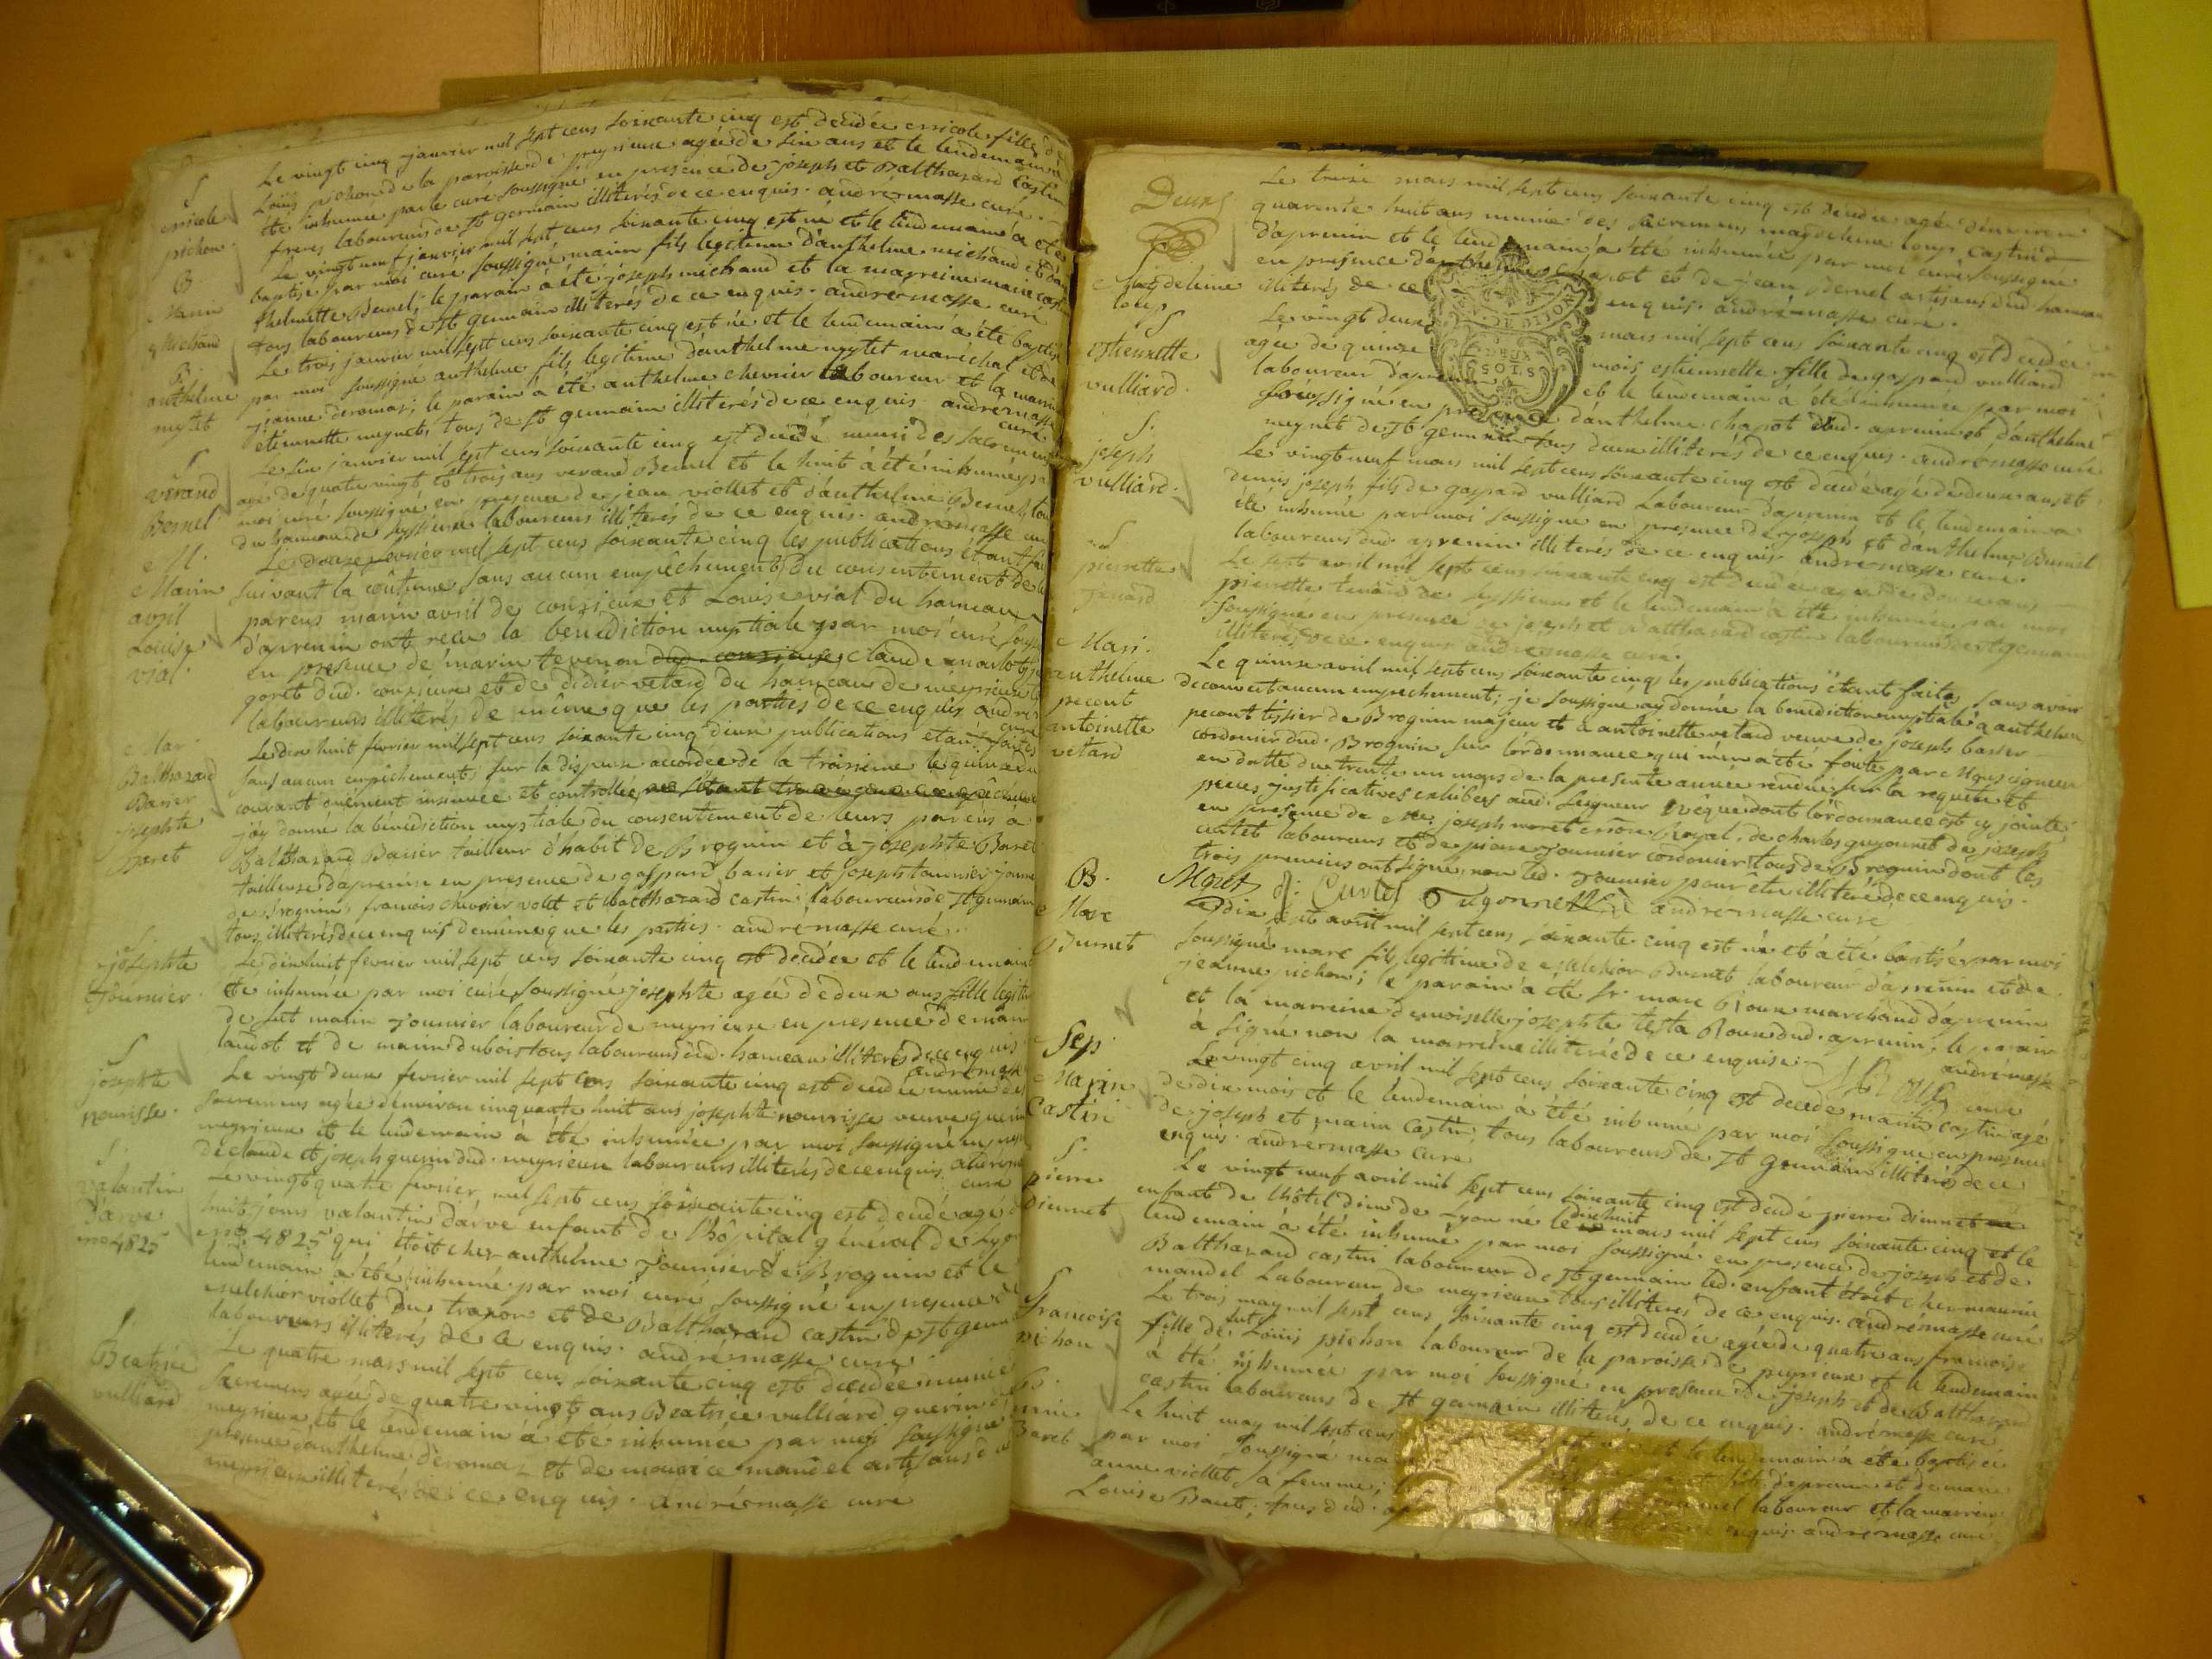 S
nicole
pichon.
Le vingt cinq janvier mil sept cens soixante cinq est decedée nicole fille de
Loüis pichon de la paroisse de peyrieux agée de six ans et le lendemain a
été inhumée par le curé soussigné en presence de joseph et Balthazard Castin
freres laboureurs de St germain illiterés de ce enquis. andré masse curé.
B.
Marin
Michaud
Le vingt neuf janvier mil sept cens soixante cinq est né et le lendemain a été
baptisé par moi curé soussigné marin fils legitime d'anthelme michaud et d'an
thelmette Bernel; le parain a été joseph michaud et la mareine marie castin
tous laboureurs de St germain illiterés de ce enquis. andré masse curé
B.
anthelme
mytet
Le trois janvier mil sept cens soixante cinq est né et le lendemain a été baptisé
par moi soussigné anthelme fils legitime d'anthelme mytet maréchal et de
jeanne deromas; le parain a été anthelme chevrier laboureur et la marreine
etiennette meynet, tous de St germain illiterés de ce enquis. andré masse
curé
S
vérand
Bernel
Le six janvier mil sept cens soixante cinq est decedé muni des sacremens
agé de quatre vingt et trois ans verand Bernel et le huit a été inhumé par
moi curé soussigné en presence de jean viollet et d'anthelme Bernel, tous
du hameau de layssieux laboureurs illiterés de ce enquis. andré masse curé
M.
Marin
avril
Louise
vial.
Le douze fevrier mil sept cens soixante cinq les publications étant faites
suivant la coûtume sans aucun empêchement, du consentement de leurs
parens marin avril de conzieux et Louise vial du hameau
d'aprenin ont reçu la benediction nuptiale par moi curé sous
en presence de marin tevenon dud. conzieux claude marlot
goret dud. conzieux et de didier vetard du hameau de meyrieux
laboureurs illiterés de même que les parties de ce enquis andré
curé
Mar.
Balthazard
Barier
josephte
Baret
Le dix huit fevrier mil sept cens soixante cinq deux publications etant faites
sans aucun empêchement, sur la dispense accordée de la troisieme le quinze du
courant düement insinuée et controllée
j'ay donné la bénédiction nuptiale du consentement de leurs parens a
Balthazard Barier tailleur d'habit de Brognin et à josephte Baret
tailleuse d'aprenin en presence de gaspard barier et joseph tournier
de Brognin, francois chevrier volet et balthazard castin laboureurs de St germain
tous illiterés de ce enquis de même que les parties. andré masse curé.
S
josephte
fournier.
Le dix huit fevrier mil sept cens soixante cinq est decedée et le lendemain
été inhumée par moi curé soussigné josephte agée de deux ans fille legitime
de fut marin fournier laboureur de meyrieux en presence de marin
landot et de marin dubois tous laboureurs dud. hameau illiterés de ce enquis
andré masse
S
josephte
nourisse.
Le vingt deux fevrier mil sept cens soixante cinq est decedée munie des
sacremens agée d'environ cinquante huit ans josephte nourrisse veuve guerin
meyrieux et le lendemain à été inhumée par moi soussigné en presence
de claude et joseph guerin dud. meyrieux laboureurs illiterés de ce enquis. andré masse
curé
S
valantin
d'arve
no 4825
Le vingt quatre fevrier, mil sept cens soixante cinq est decedé agé
huit jours valantin d'arve enfant de l'hôpital general de Lyon
no 4825 qui étoit chez anthelme fournier de Brognin et le
lendemain a été inhumé par moi curé soussigné en presence de
melchior viollet du trapon et de Balthazard castin de St germain
laboureurs illiterés de ce enquis. andré masse curé
S
Beatrice
vulliard
Le quatre mars mil sept cens soixante cinq est decedée munie
sacremens agée de quatre vingt ans Beatrice vulliard guerin
meyrieux et le lendemain à été inhumée par moi soussigné
presence d'anthelme deromaz et de maurice mandel artisans
meyrieux illiterés de ce enquis. andré masse curé
Deuxe
S
Magdeleine
loup
Le treize mars mil sept cens soixante cinq est decedée agée d'environ
quarente huit ans munie des sacremens magdeleine loup castin
d'aprenin et le lendemain a été inhumée par moi curé soussigné
en presence d'anthelme chapot et de jean Bernel artisans dud hameau
illiterés de ce enquis. andré masse curé.
DE DIJON
DEUX
SOLS
S
etiennette
vulliard.
Le vingt deux mars mil sept cens soixante cinq est decedée
agée de quinze mois etiennette fille de gaspard vulliard
laboureur d'aprenin et le lendemain à été inhumée par moi
soussigné en presence d'anthelme chapot dud. aprenin et d'anthelme
meynet de St germain tous deux illiterés de ce enquis. andré masse curé
S.
joseph
vulliard.
Le vingt neuf mars mil sept cens soixante cinq est decedé agé de deux ans et
demis joseph fils de gaspard vulliard Laboureur d'aprenin et le lendemain a
été inhumé par moi soussigné en presence de joseph et d'anthelme Burnel
laboureurs dud. aprenin illiterés de ce enquis andré masse curé.
S
pierrette
Le sept avril mil sept cens soixante cinq est decedée agée de douze ans
pierrette de layssieux et le lendemain a été inhumée par moi
soussigné en presence de joseph et Balthazard castin laboureurs de St germain
illiterés de ce enquis andré masse curé.
Mari.
anthelme
pecout
antoinette
vetard
Le quinze avril mil sept cens soixante cinq, les publications étant faites sans avoir
decouvert aucun empechement; je soussigné ay donné la benediction nuptiale a anthelme
pecout tissier de Brognin majeur et à antoinette vetard veuve de joseph barier
cordonnier dud. Brognin sur l'ordonnance qui m'en a été faite par Monseigneur
en datte du trente un mars de la presente année rendüe sur la requete et
pieces justificatives exhibées aud. Seigneur Evêque dont l'ordonnance est cy jointe
en presence de Me. joseph moret Royal, de charles guyonnet de joseph
curtet laboureurs et de pierre fournier cordonier tous de Brognin dont les
trois premiers ont signé, non led. fournier pour être illiteré de ce enquis.
Moret J. Curtet guyonnet andré masse curé
B.
Marc
Burnet
Le dix sept avril mil sept cens soixante cinq est né et a été baptisé par moi
soussigné marc fils legitime de melchior Burnet laboureur d'aprenin et de
jeanne pichon; le parain a été sr. marc Roux marchand d'aprenin
et la marreine demoiselle josephte testa Roux dud. aprenin, le parain
à signé non la marreine illiterée de ce enquise.
andré masse
curé
Sep.
Marin
Castin
Le vingt cinq avril mil sept cens soixante cinq est decedé marin castin agé
de dix mois et le lendemain à été inhumé par moi soussigné en presence
de joseph et marin Castin, tous laboureurs de St germain illiterés de ce
enquis. andré masse curé
S.
pierre
diennet
Le vingt neuf avril mil sept cens soixante cinq est decedé pierre diennet
enfant de l'hôtel dieu de Lyon né le dix huit mars mil sept cens soixante cinq et le
lendemain à été inhumé par moi soussigné en presence de joseph et de
Balthazard castin laboureur de St germain led. enfant étoit chez maurice
mandel Laboureur de meyrieux tous illiterés de ce enquis. andré masse curé
S
francoise
pichon
Le trois may mil sept cens soixante cinq est decedée agée de quatre ans francoise
fille de fut Loüis pichon laboureur de la paroisse de peyrieux et le lendemain
à été inhumée par moi soussigné en presence de joseph et de Balthazard
castin laboureurs de St germain illiterés de ce enquis. andré masse curé
B.
Baret
Le huit may mil sept cens et le lendemain à été baptisé
par moi soussigné d'aprenin et de
anne viollet sa femme; laboureur et la marreine
Louise Baret; tous dud. enquis andré masse curé